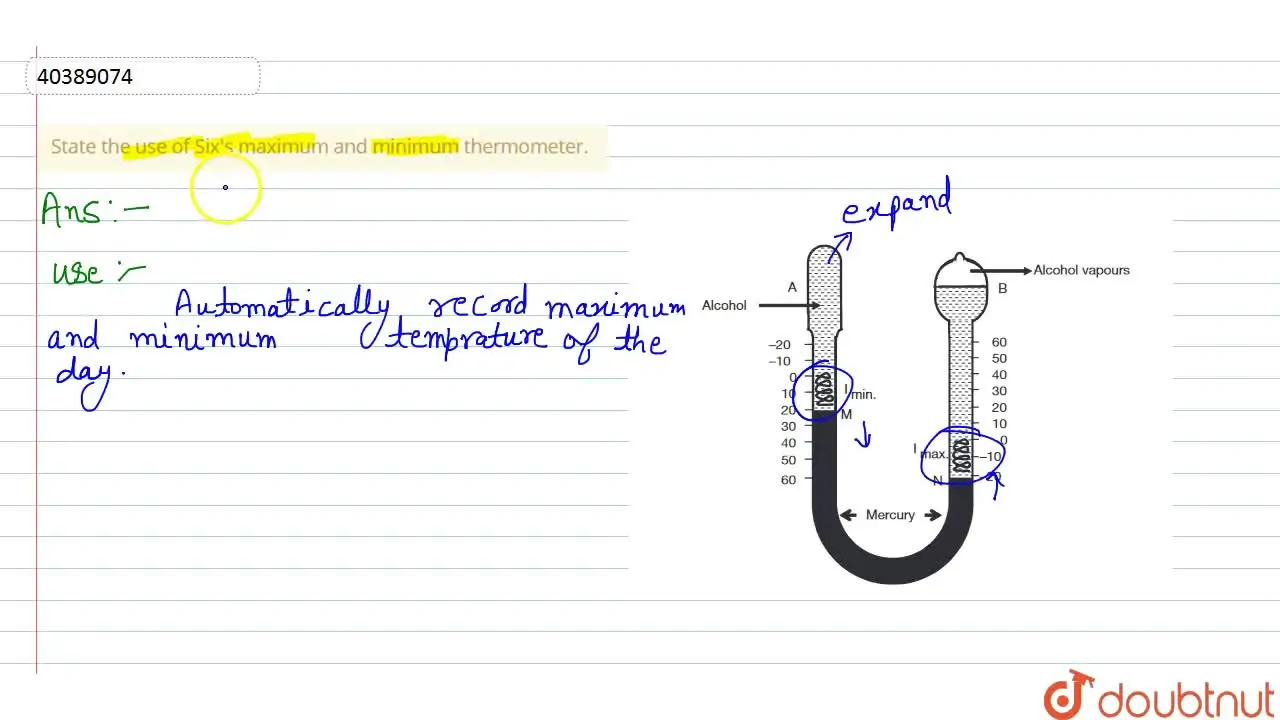 40389074
State the use of Six's maximum and minimum thermometer.
Ans:-
use :-
Automatically record maximum
and minimum temprature of the
day.
expand
Alcohol vapours
A
B
Alcohol
-20
-10
0
10
20
30
40
50
60
I min.
M
60
50
40
30
20
10
0
-10
-20
I max.
N
Mercury
doubtnut